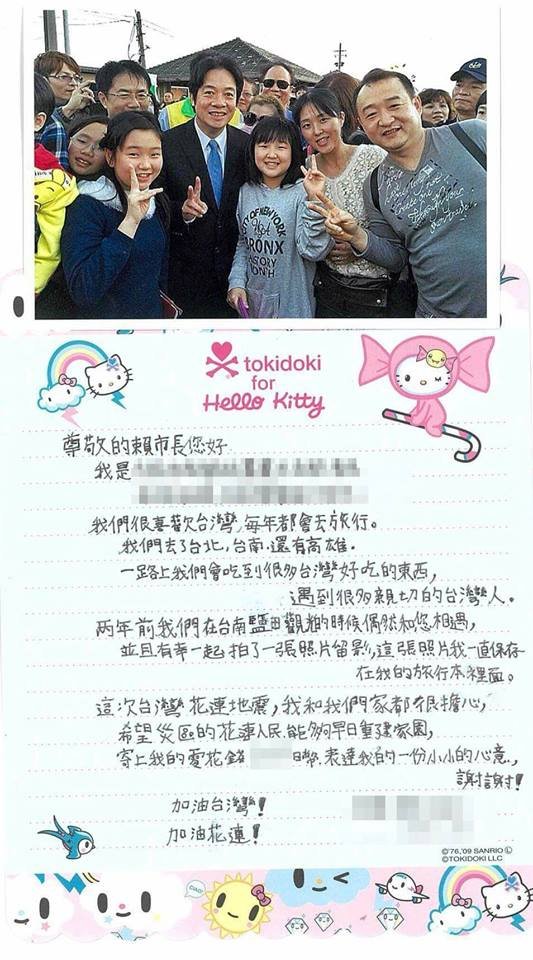 CITY OF NEW YORK
BRONX
HISTORY
tokidoki
for
Hello Kitty
尊敬的賴市長您好
我是
我們很喜歡台灣,每年都會去旅行。
我們去了台北,台南.還有高雄.
一路上我們會吃到很多台灣好吃的東西,
遇到很多親切的台灣人。
兩年前我們在台南鹽田觀光的時候偶然和您相遇,
並且有幸一起拍了一張照片留影,這張照片我一直保存
在我的旅行本裡面。
這次台灣花蓮地震,我和我們家都很擔心,
希望災區的花蓮人民能夠早日重建家園,
寄上我的零花錢 日幣.表達我的一份小小的心意.,
謝謝!
加油台灣!
加油花蓮!
©'76,'09 SANRIO Ⓛ
©TOKIDOKI LLC
CIAO